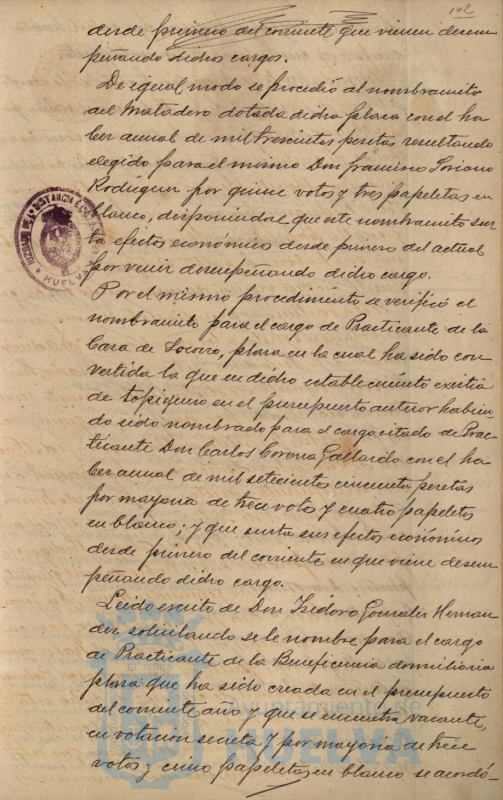 102
desde primero del corriente que vienen desem
peñando dichos cargos.
De igual modo se procedió al nombramiento
del Matadero dotada dicha plaza con el ha
ber anual de mil trescientas pesetas resultando
elegido para el mismo Don Francisco Soriano
Rodriguez por quince votos y tres papeletas en
blanco, disponiendose que este nombramiento sur
ta efectos económicos desde primero del actual
por venir desempeñando dicho cargo.
Por el mismo procedimiento se verificó el
nombramiento para el cargo de Practicante de la
Casa de Socorro, plaza en la cual ha sido con
vertida la que en dicho establecimiento existia
de topiquero en el presupuesto anterior habien
do sido nombrado para el cargo citado de Prac-
ticante Don Carlos Corona Gallardo con el ha
ber anual de mil setecientas cincuenta pesetas
por mayoria de trece votos y cuatro papeletas
en blanco; y que surta sus efectos económicos
desde primero del corriente en que viene desem
peñando dicho cargo.
Leido escrito de Don Isidoro Gonzalez Hernan
dez solicitando se le nombre para el cargo
de Practicante de la Beneficencia domiciliaria
plaza que ha sido creada en el presupuesto
del corriente año y que se encuentra vacante,
en votación secreta y por mayoria de trece
votos y cinco papeletas en blanco se acordó-
HUELVA
Ayuntamiento de
HUELVA